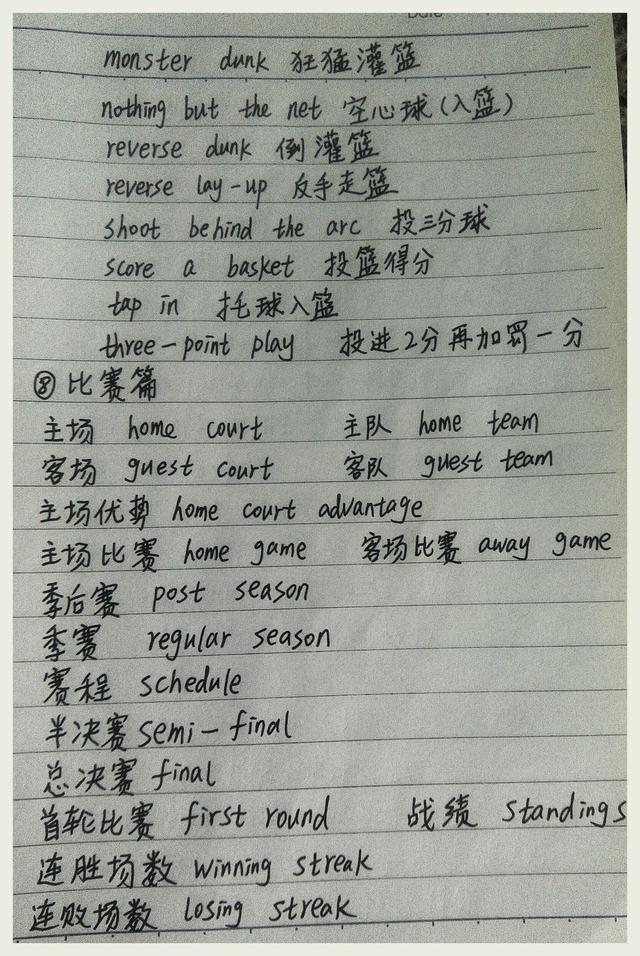 monster dunk 狂猛灌篮
nothing but the net 空心球(入篮)
reverse dunk 倒灌篮
reverse lay-up 反手走篮
shoot behind the arc 投三分球
score a basket 投篮得分
tap in 托球入篮
three-point play 投进2分再加罚一分
⑧ 比赛篇
主场 home court 主队 home team
客场 guest court 客队 guest team
主场优势 home court advantage
主场比赛 home game 客场比赛 away game
季后赛 post season
季赛 regular season
赛程 schedule
半决赛 semi-final
总决赛 final
首轮比赛 first round 战绩 standings
连胜场数 winning streak
连败场数 losing streak